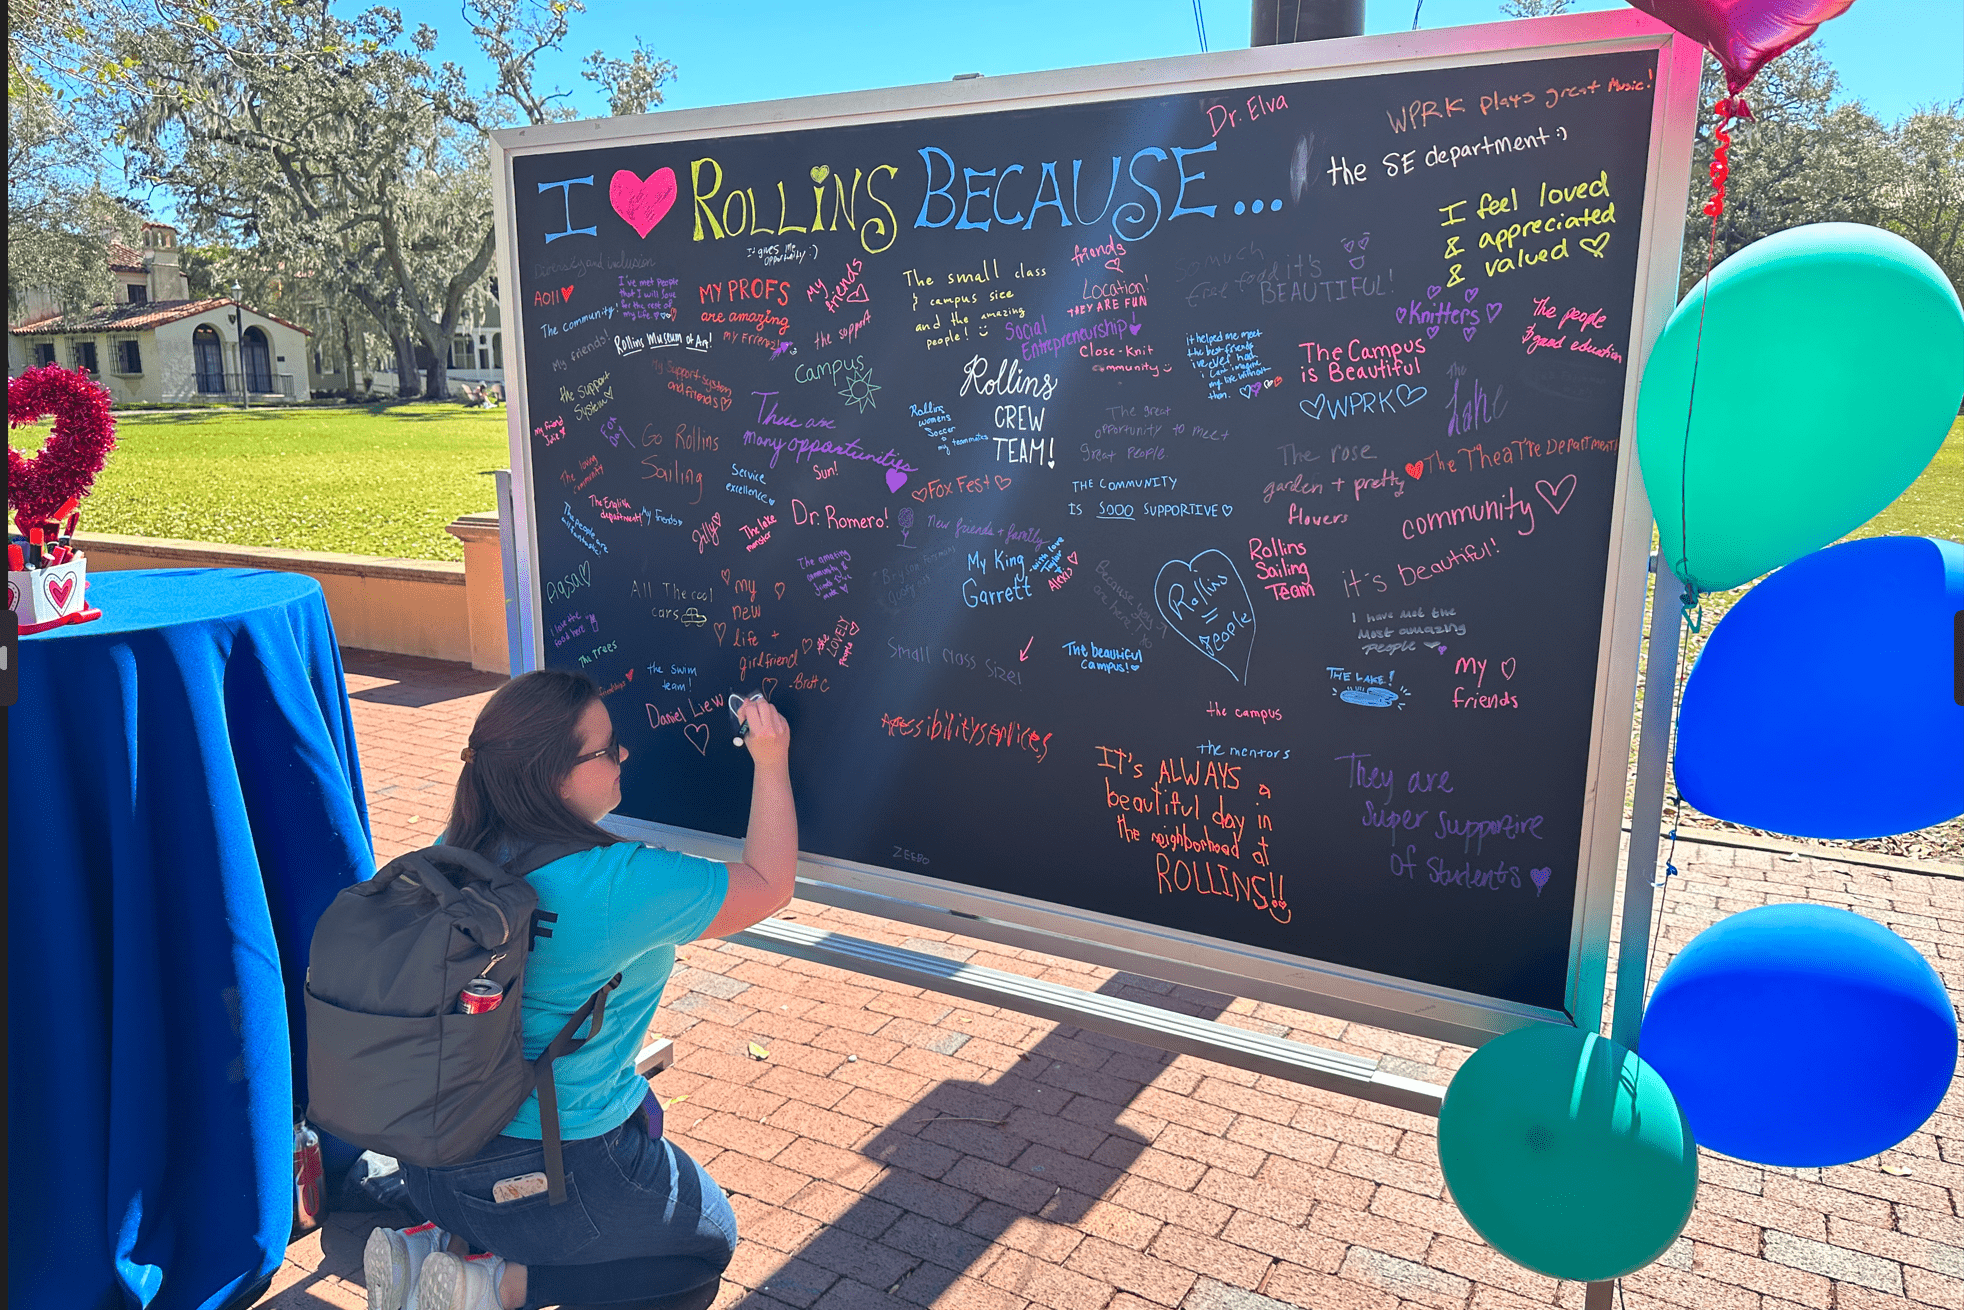 I ROLLINS BECAUSE...
Dr. Elva
WPRK plays great Music!
the SE department :)
I feel loved
& appreciated
& valued
Diversity and inclusion
It gives me
opportunity :)
AOII
I've met people
that I will love
for the rest of
my life
The community!
My friends!
Rollins Museum of Art!
MY PROFS
are amazing
my friends
My
friends
the support
The small class
& campus size
and the amazing
people!
friends
Location!
THEY ARE FUN
Social
Entrepreneurship
Close-Knit
community
so much
free food
it's
BEAUTIFUL!
it helped me meet
the best friends
i've ever had
i can't imagine
my life without
them.
Knitters
The people
& good education
The Campus
is Beautiful
WPRK
The
lake
the support
System
My Support system
and friends
Campus
Rollins
CREW
TEAM!
Rollins
womens
Soccer
my teammates
There are
many opportunities
The great
opportunity to meet
great people
My friend
Julie
Fox
Day
Go Rollins
Sailing
Sun!
Service
excellence
Fox Fest
The rose
garden + pretty
flowers
The Theatre Department
The loving
community
The people are
all fantastic!
The English
department
My Friends
Jilly
The lake
monster
Dr. Romero!
New friends + family
THE COMMUNITY
IS SOOO SUPPORTIVE
community
it's beautiful!
Rollins
Sailing
Team
The amazing
community &
My King
Garrett
with love
Taylor
Alexis
Because
are here
Rollins
people
I have met the
Most amazing
people
All The cool
cars
I love the
food here
The trees
my
new
life +
girlfriend
-Brett C
the
LOVELY
people
Small class size!
The beautiful
campus!
THE LAKE!
My
friends
friendships
the swim
team!
Daniel Liew
Accessibility services
the campus
the mentors
It's ALWAYS a
beautiful day in
the neighborhood at
ROLLINS!!
They are
Super Supportive
Of Students
ZEEDO
F